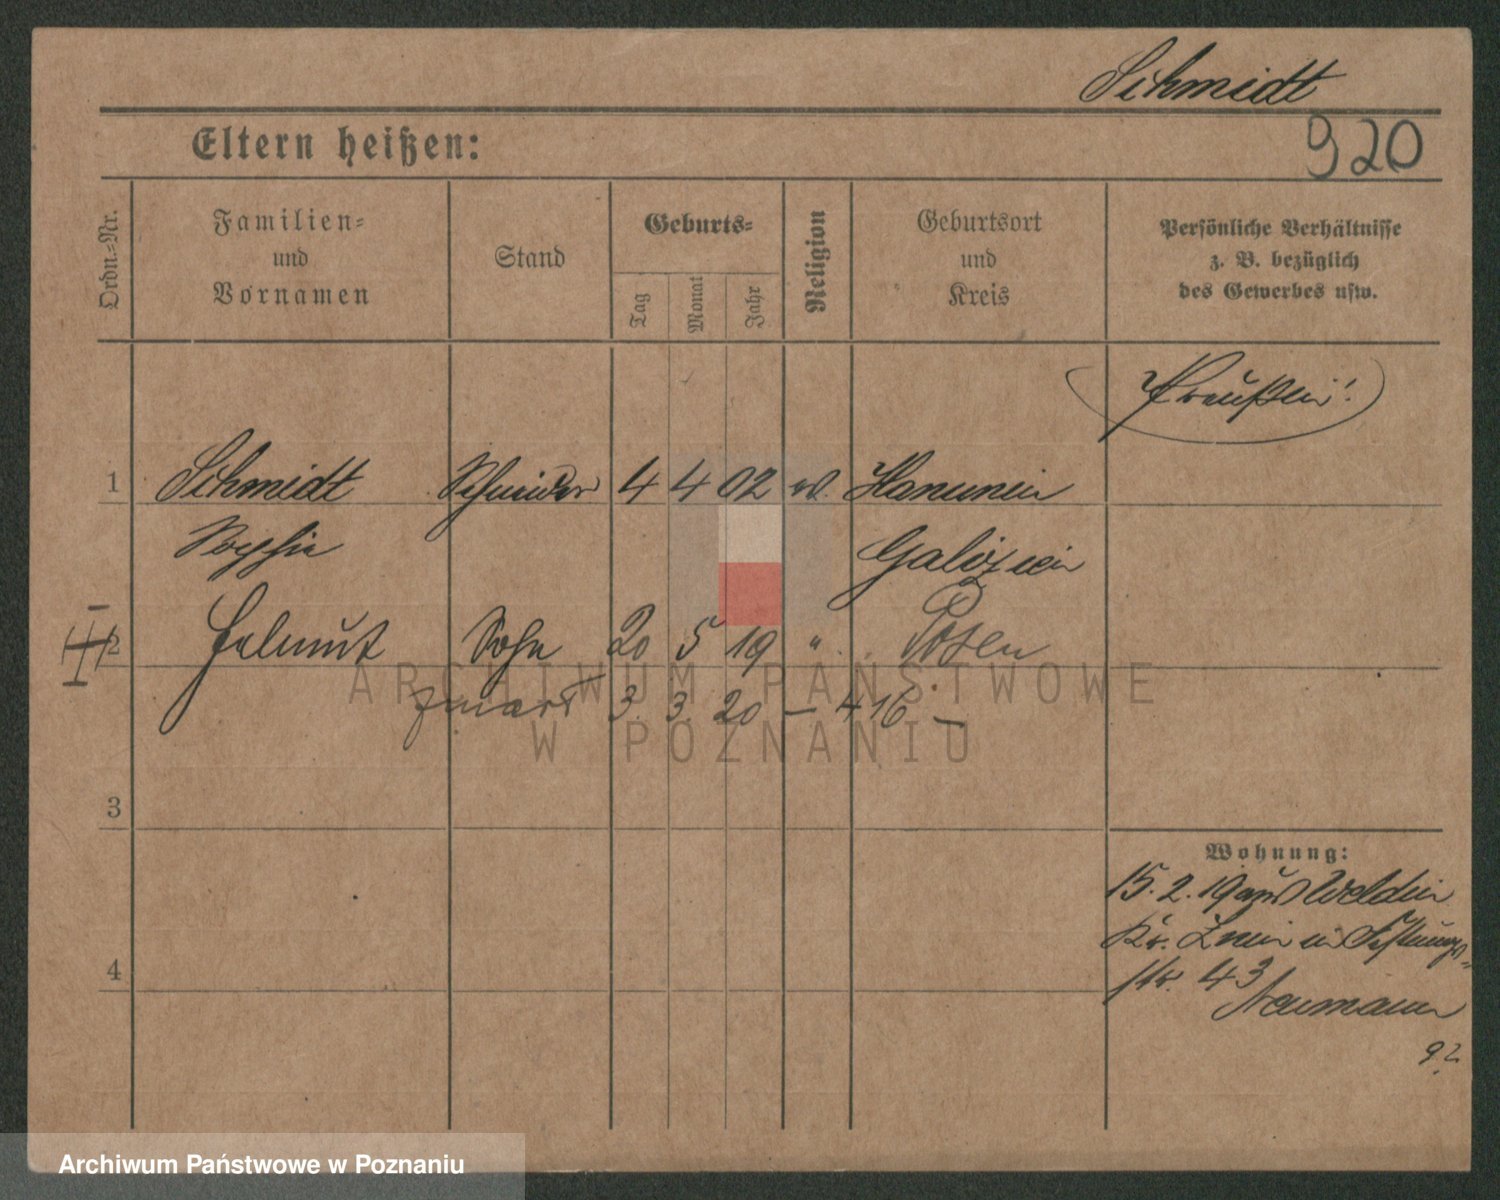 Schmidt
920
Eltern heißen:
Ordn.-Nr.
Familien-
und
Vornamen
Stand
Geburts-
Tag
Monat
Jahr
Religion
Geburtsort
und
Kreis
Persönliche Verhältnisse
z. B. bezüglich
des Gewerbes usw.
Preußen!
1 Schmidt 4 4 02 ev.
Sophie Galizien
2 Helmut Sohn 20 5 19 " Posen
3. 3. 20 — 416 —
3
4
Wohnung:
15. 2. 19 aus
Kr. Znin in Festungs-
str. 43
Neumann
92
ARCHIWUM PAŃSTWOWE
W POZNANIU
Archiwum Państwowe w Poznaniu